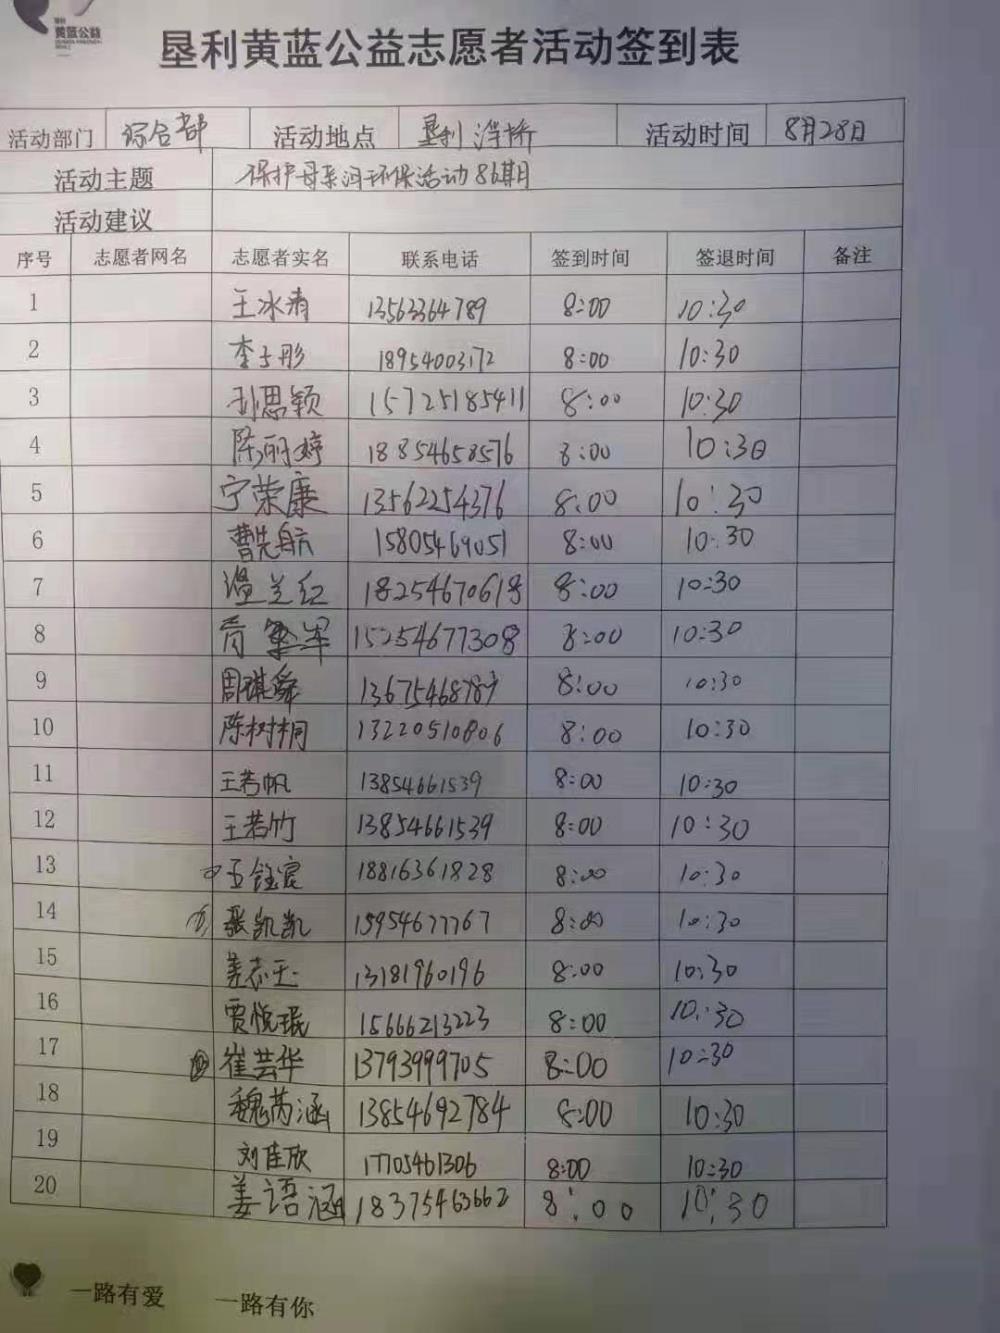 黄蓝公益
垦利黄蓝公益志愿者活动签到表
活动部门 综合部 活动地点 垦利浮桥 活动时间 8月28日
活动主题 保护母亲河环保活动86期
活动建议
序号 志愿者网名 志愿者实名 联系电话 签到时间 签退时间 备注
1 王冰清 13563364789 8:00 10:30
2 李子彤 18954003172 8:00 10:30
3 刘思颖 15725185411 8:00 10:30
4 陈丽婷 18854658576 8:00 10:30
5 宁荣廉 13562254376 8:00 10:30
6 曹先航 15805469051 8:00 10:30
7 温兰红 18254670618 8:00 10:30
8 15254677308 8:00 10:30
9 周琪舜 13675468787 8:00 10:30
10 陈树桐 13220510806 8:00 10:30
11 王若帆 13854661539 8:00 10:30
12 王若竹 13854661539 8:00 10:30
13 王钰宸 18816361828 8:00 10:30
14 张凯凯 15954677767 8:00 10:30
15 姜志玉 13181960196 8:00 10:30
16 贾悦琨 15666213223 8:00 10:30
17 崔芸华 13793999705 8:00 10:30
18 魏芮涵 13854692784 8:00 10:30
19 刘佳欣 17705461306 8:00 10:30
20 姜语涵 18375463662 8:00 10:30
一路有爱 一路有你